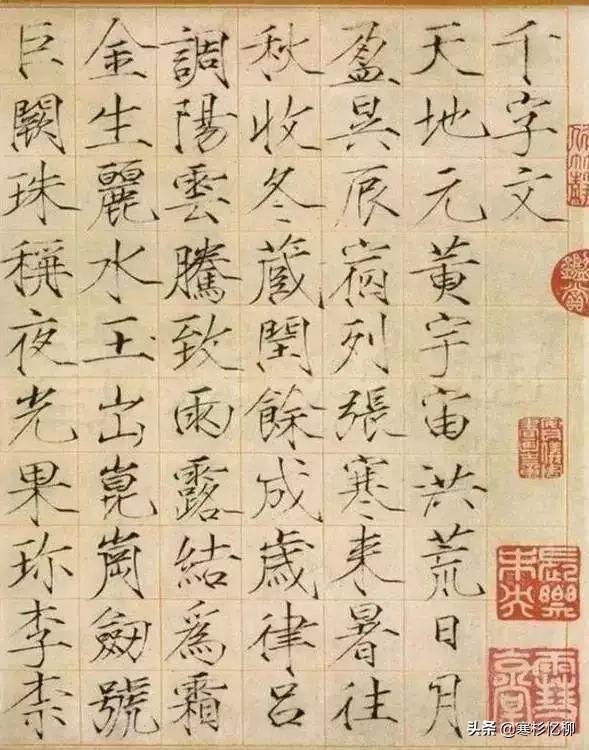 千字文
天地元黃宇宙洪荒日月
盈昃辰宿列張寒来暑往
秋收冬蔵閏餘成歲律呂
調陽雲騰致雨露結爲霜
金生麗水玉出崑崗劒號
巨闕珠稱夜光果珎李柰
鑑賞
頭条 @寒杉忆柳